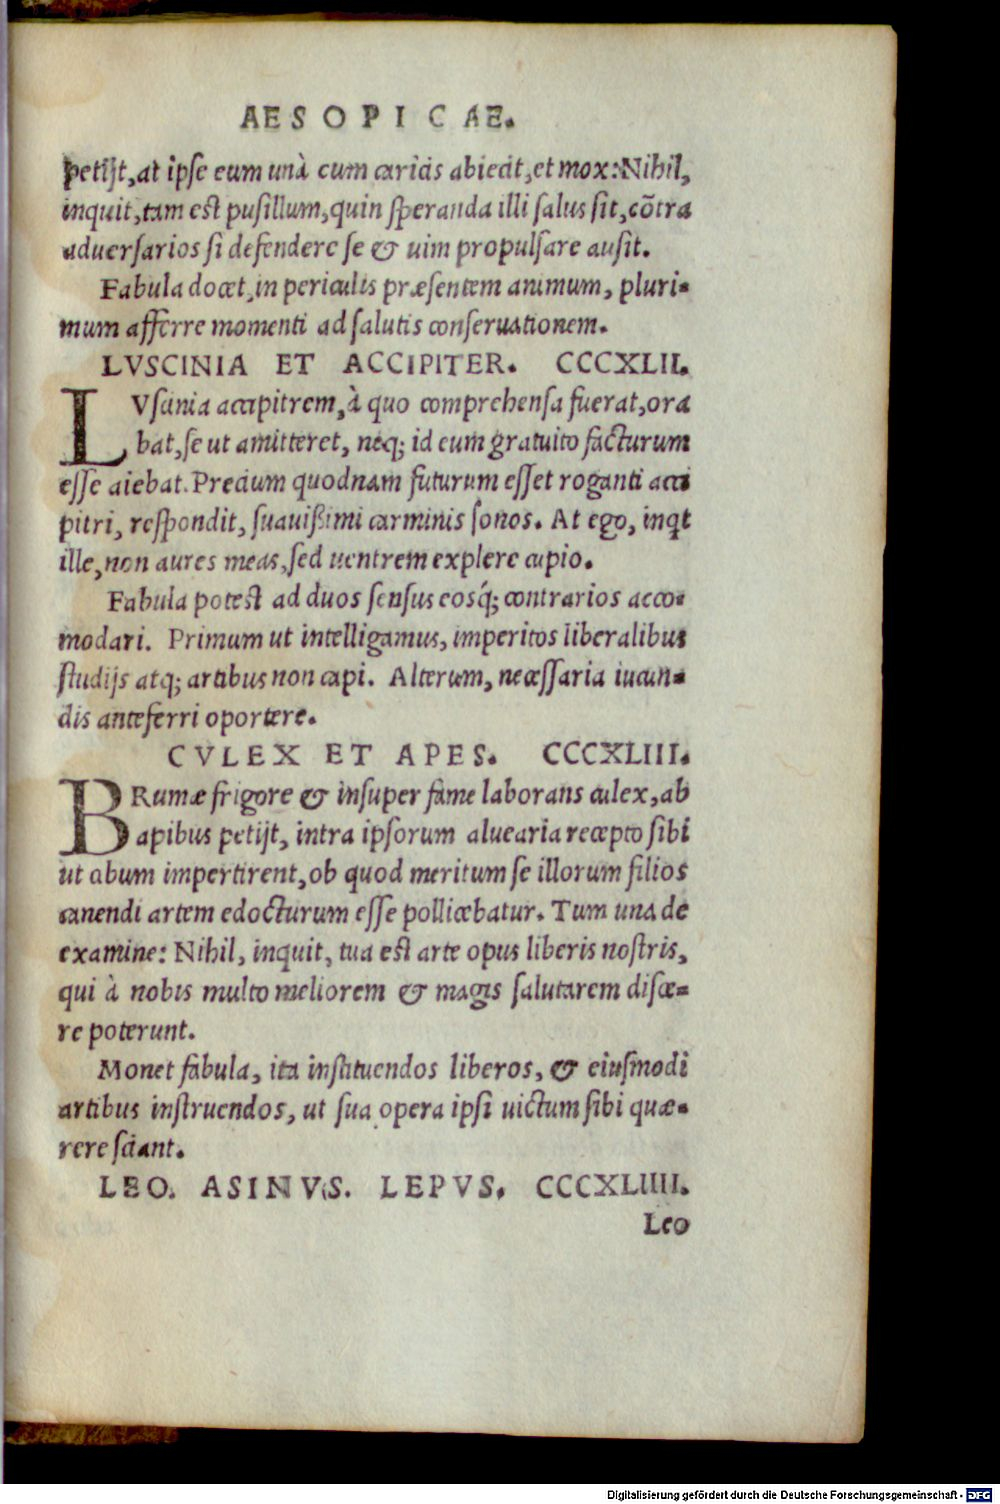 AESOPICAE.
petijt, at ipse eum unà cum caricis abiecit, et mox: Nihil,
inquit, tam est pusillum, quin speranda illi salus sit, cõtra
aduersarios si defendere se & uim propulsare ausit.
Fabula docet, in periculis præsentem animum, pluri-
mum afferre momenti ad salutis conseruationem.
LVSCINIA ET ACCIPITER. CCCXLII.
LVscinia accipitrem, à quo comprehensa fuerat, ora
bat, se ut amitteret, neq; id eum gratuito facturum
esse aiebat. Precium quodnam futurum esset roganti acci
pitri, respondit, suauißimi carminis sonos. At ego, inqt
ille, non aures meas, sed uentrem explere cupio.
Fabula potest ad duos sensus eosq́; contrarios acco-
modari. Primum ut intelligamus, imperitos liberalibus
studijs atq; artibus non capi. Alterum, necessaria iucun-
dis anteferri oportere.
CVLEX ET APES. CCCXLIII.
BRumæ frigore & insuper fame laborans culex, ab
apibus petijt, intra ipsorum aluearia recepto sibi
ut cibum impertirent, ob quod meritum se illorum filios
canendi artem edocturum esse pollicebatur. Tum una de
examine: Nihil, inquit, tua est arte opus liberis nostris,
qui à nobis multo meliorem & magis salutarem disce-
re poterunt.
Monet fabula, ita instituendos liberos, & eiusmodi
artibus instruendos, ut sua opera ipsi uictum sibi quæ-
rere sciant.
LEO. ASINVS. LEPVS. CCCXLIIII.
Leo
Digitalisierung gefördert durch die Deutsche Forschungsgemeinschaft - DFG